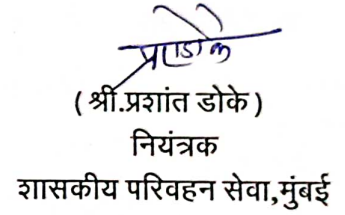 प्रडोके
(श्री.प्रशांत डोके)
नियंत्रक
शासकीय परिवहन सेवा,मुंबई